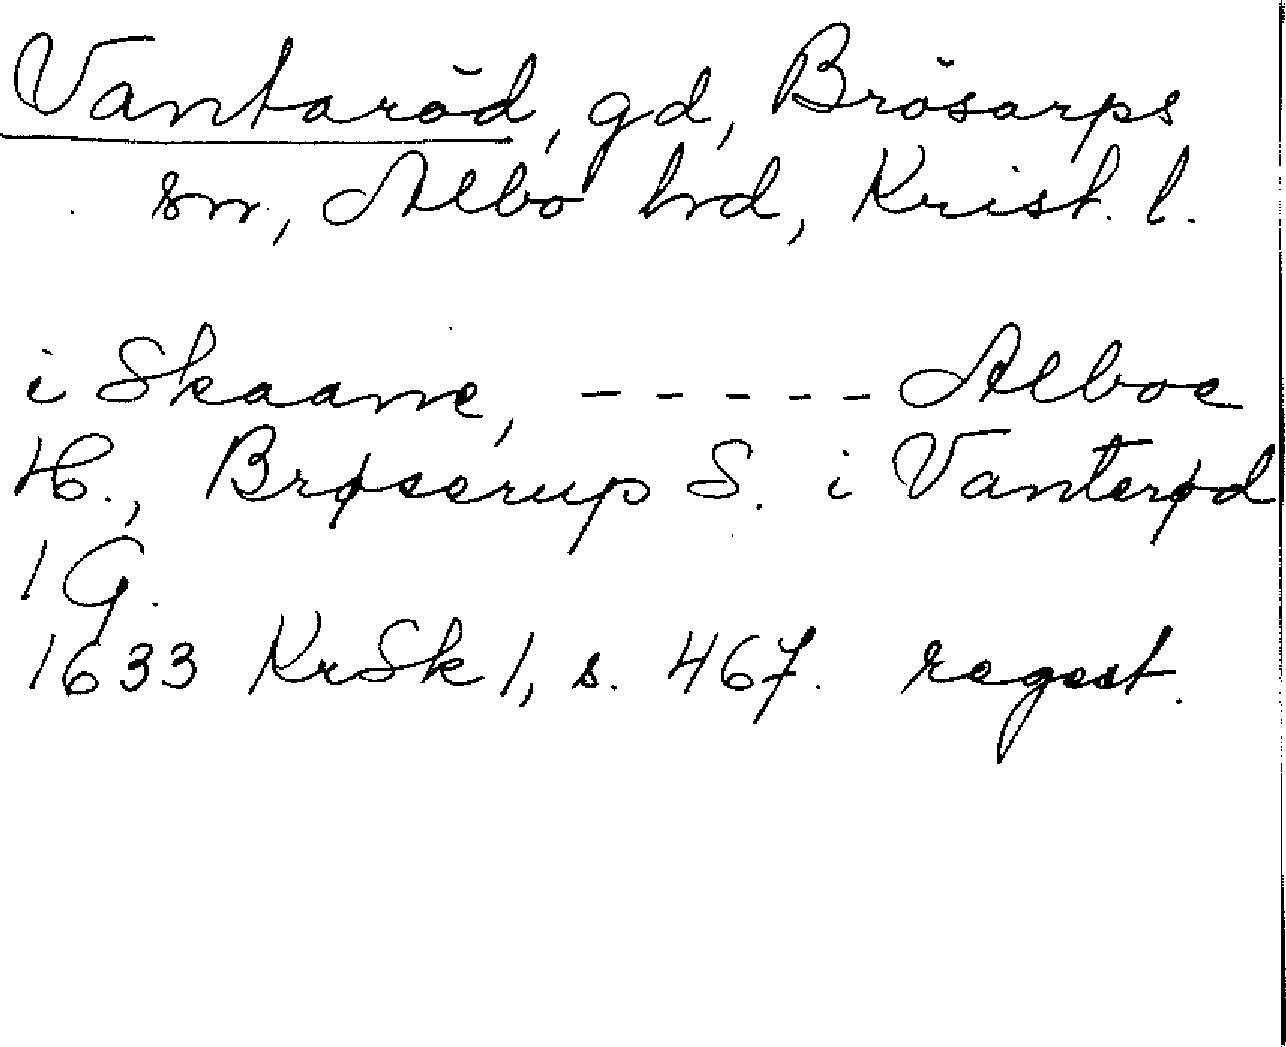 Vantaröd, gd, Brösarps
sn, Albo hrd, Krist. l.
i Skaane, - - - - - Alboe
H., Brøserup S. i Vanterød
1 G.
1633 KrSk 1, s. 467. regest.